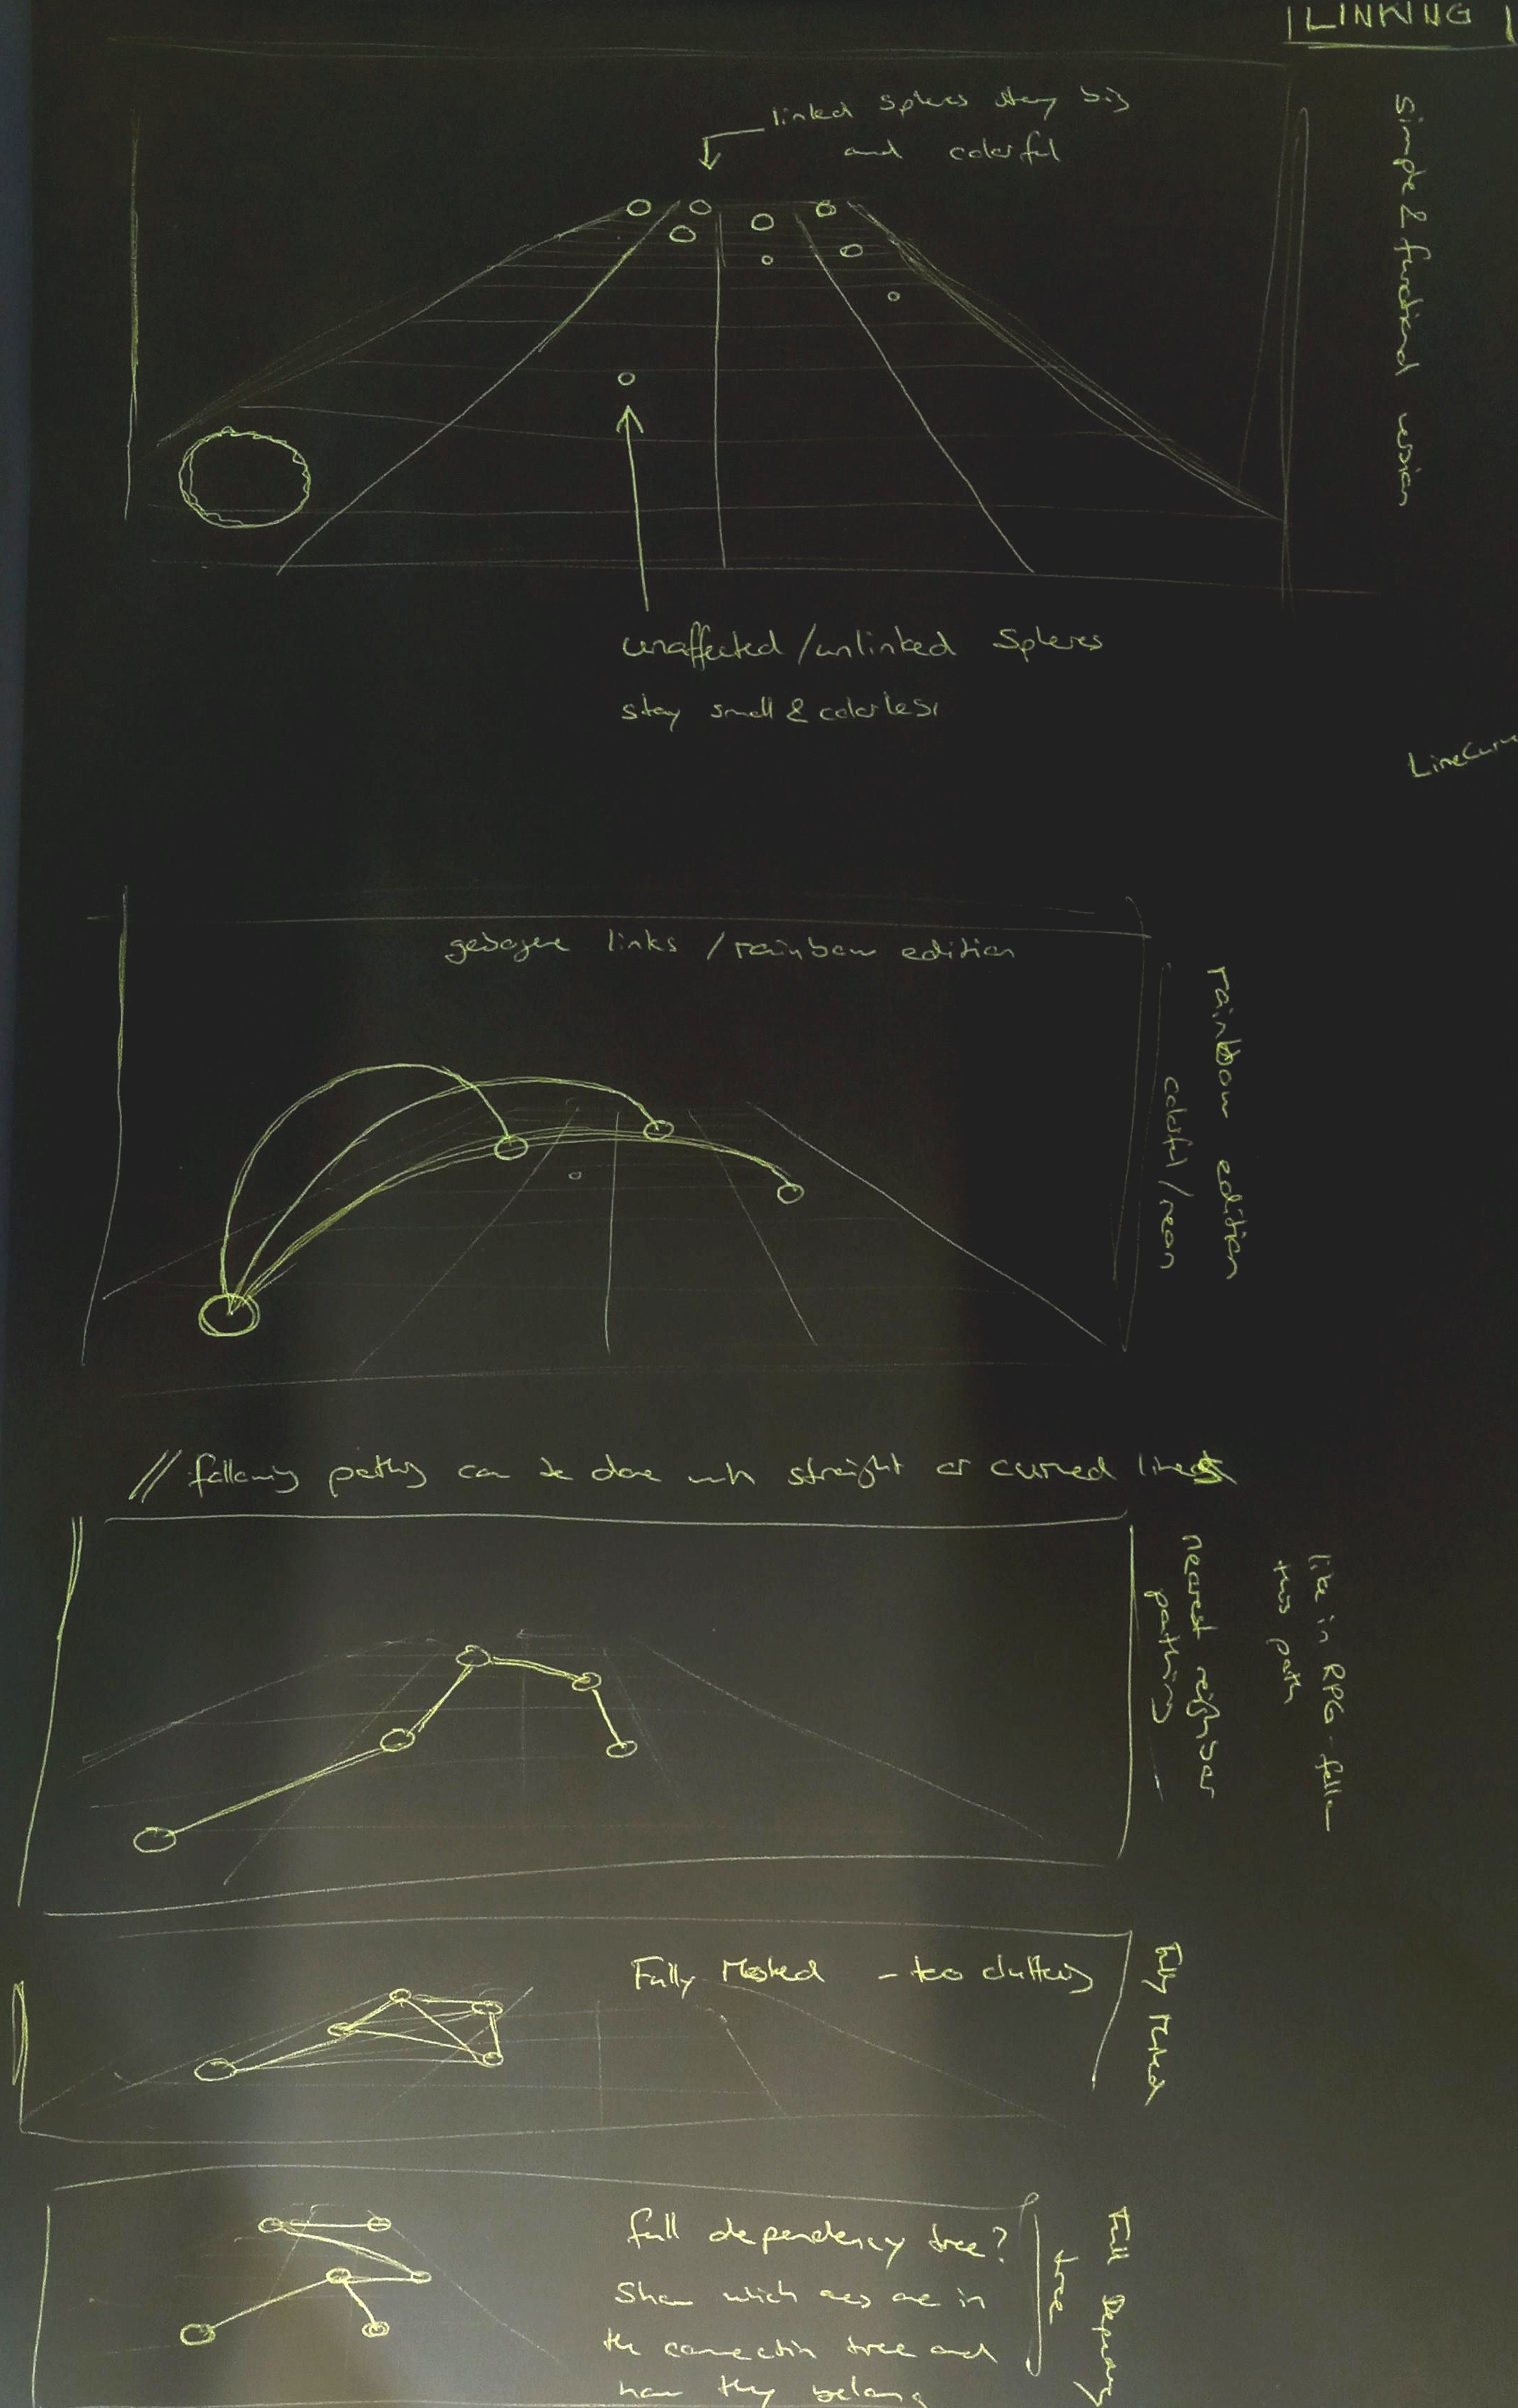 LINKING
linked spheres stay big
and colorful
simple & functional version
unaffected/unlinked Spheres
stay small & colorless
gebogene links / rainbow edition
rainbow edition
colorful/neon
// following paths can be done with straight or curved lines
nearest neighbor
pathing
like in RPG - follow
this path
Fully Meshed - too cluttery
Fully Meshed
full dependency tree?
Show which ones are in
the connection tree and
how they belong
Full Dependency
tree